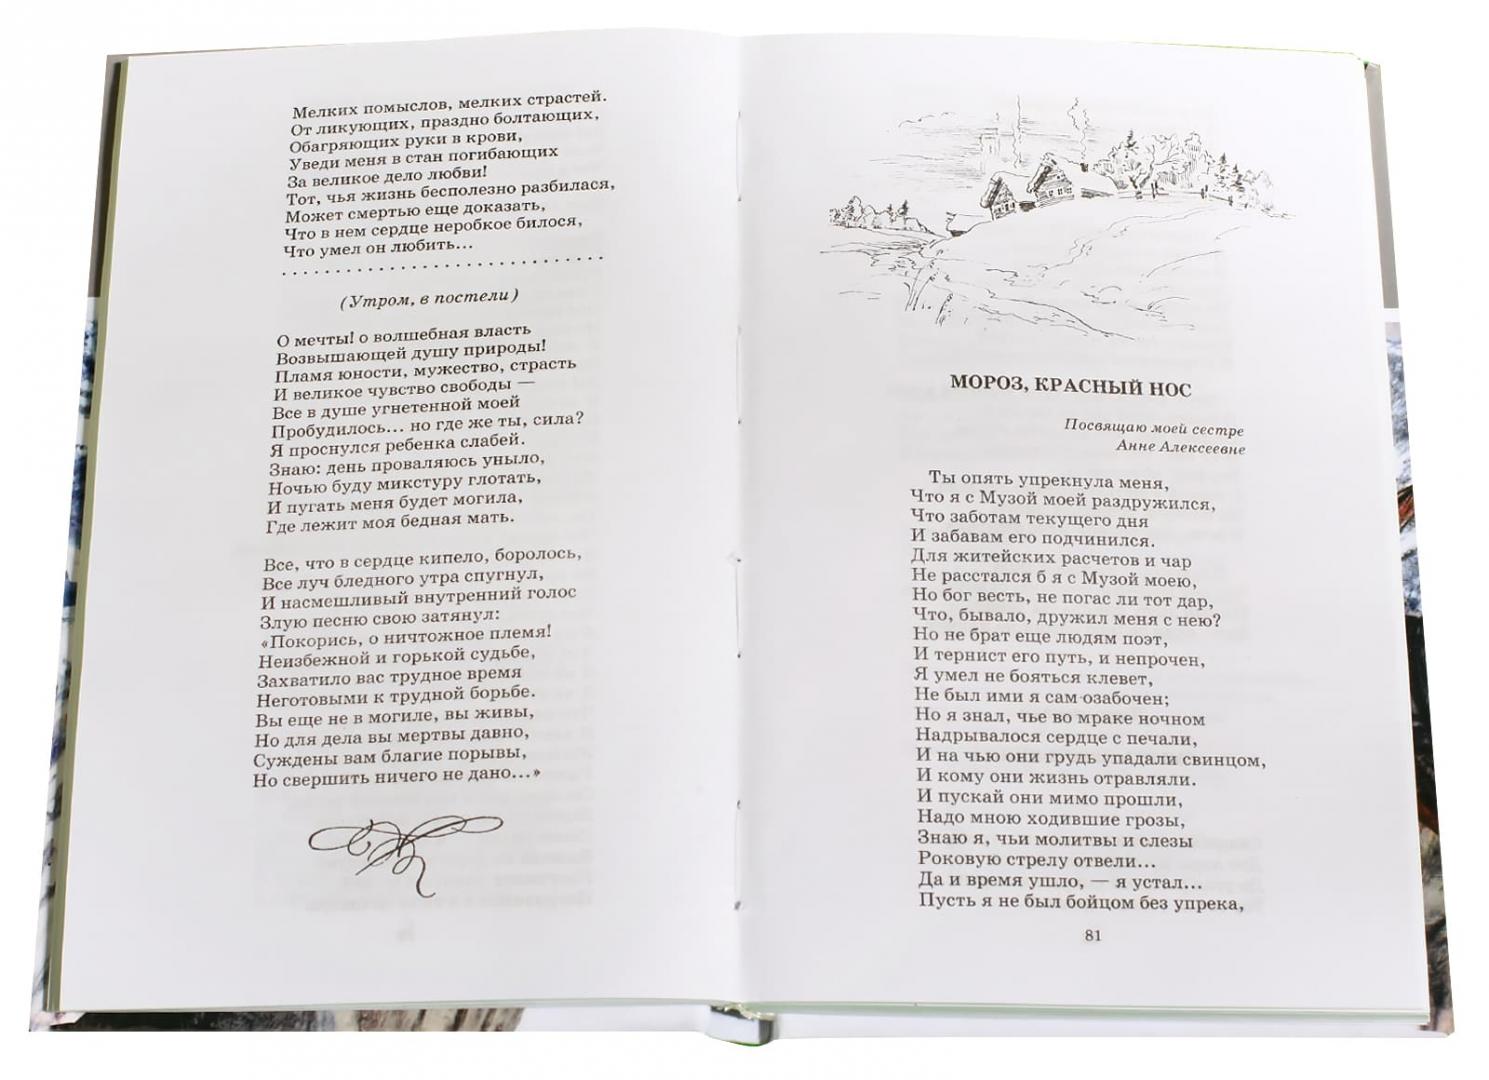 Мелких помыслов, мелких страстей.
От ликующих, праздно болтающих,
Обагряющих руки в крови,
Уведи меня в стан погибающих
За великое дело любви!
Тот, чья жизнь бесполезно разбилася,
Может смертью еще доказать,
Что в нем сердце неробкое билося,
Что умел он любить...
. . . . . . . . . . . . . . . . . . . . . . . . . . . . . .
(Утром, в постели)
О мечты! о волшебная власть
Возвышающей душу природы!
Пламя юности, мужество, страсть
И великое чувство свободы —
Все в душе угнетенной моей
Пробудилось... но где же ты, сила?
Я проснулся ребенка слабей.
Знаю: день проваляюсь уныло,
Ночью буду микстуру глотать,
И пугать меня будет могила,
Где лежит моя бедная мать.
Все, что в сердце кипело, боролось,
Все луч бледного утра спугнул,
И насмешливый внутренний голос
Злую песню свою затянул:
«Покорись, о ничтожное племя!
Неизбежной и горькой судьбе,
Захватило вас трудное время
Неготовыми к трудной борьбе.
Вы еще не в могиле, вы живы,
Но для дела вы мертвы давно,
Суждены вам благие порывы,
Но свершить ничего не дано...»
МОРОЗ, КРАСНЫЙ НОС
Посвящаю моей сестре
Анне Алексеевне
Ты опять упрекнула меня,
Что я с Музой моей раздружился,
Что заботам текущего дня
И забавам его подчинился.
Для житейских расчетов и чар
Не расстался б я с Музой моею,
Но бог весть, не погас ли тот дар,
Что, бывало, дружил меня с нею?
Но не брат еще людям поэт,
И тернист его путь, и непрочен,
Я умел не бояться клевет,
Не был ими я сам озабочен;
Но я знал, чье во мраке ночном
Надрывалося сердце с печали,
И на чью они грудь упадали свинцом,
И кому они жизнь отравляли.
И пускай они мимо прошли,
Надо мною ходившие грозы,
Знаю я, чьи молитвы и слезы
Роковую стрелу отвели...
Да и время ушло, — я устал...
Пусть я не был бойцом без упрека,
81